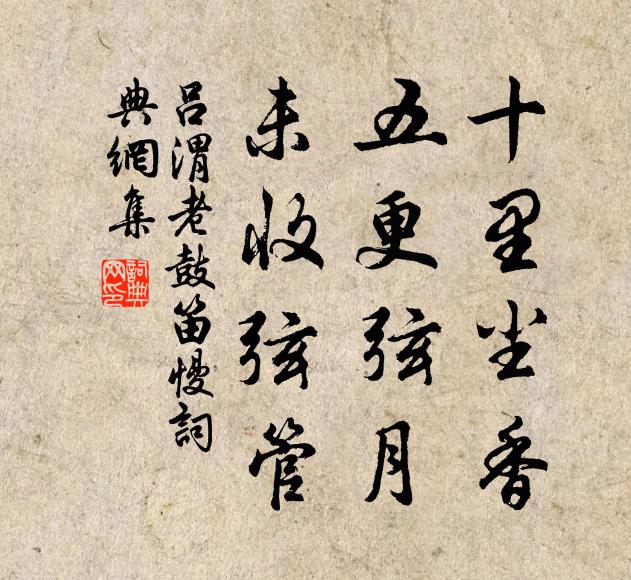 十里尘香
五更弦月
未收弦管
吕渭老鼓笛慢詞
典網集
詞典网印